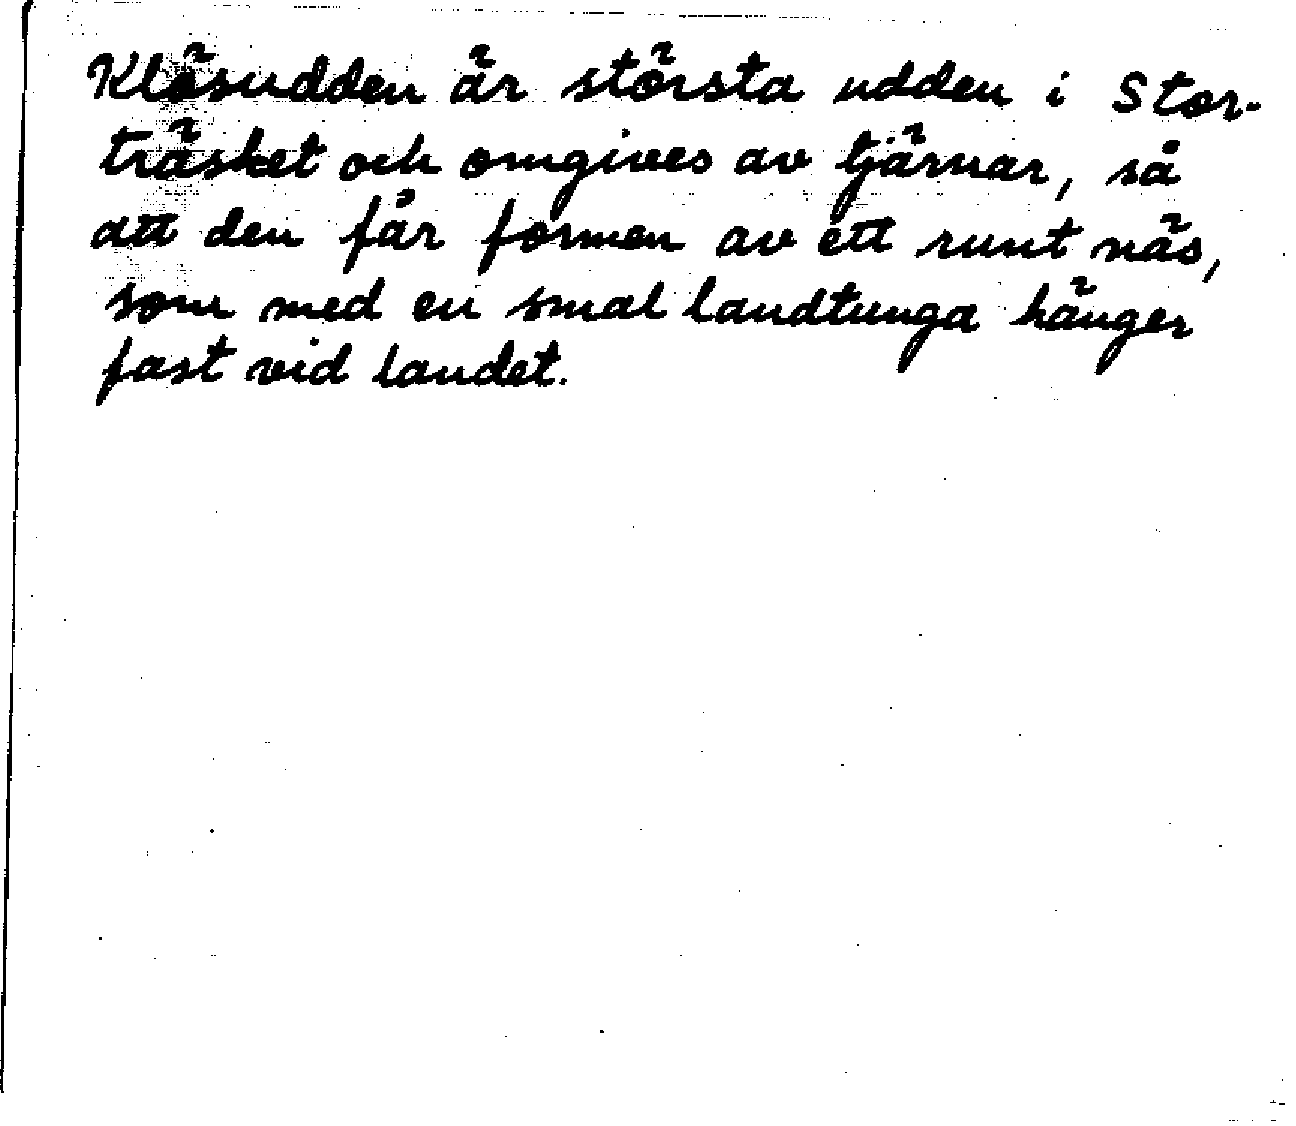 Klösudden är största udden i Stor-
träsket och omgives av tjärnar, så
att den får formen av ett runt näs,
som med en smal landtunga hänger
fast vid landet.